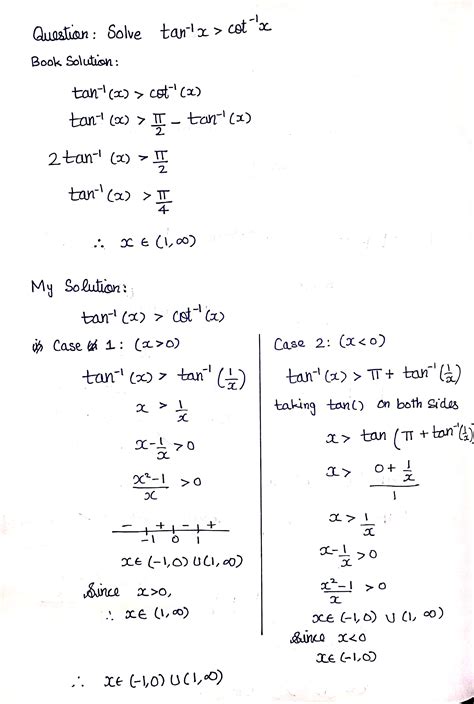 Question: Solve tan⁻¹x > cot⁻¹x
Book Solution:
tan⁻¹(x) > cot⁻¹(x)
tan⁻¹(x) > π/2 - tan⁻¹(x)
2tan⁻¹(x) > π/2
tan⁻¹(x) > π/4
∴ x ∈ (1,∞)
My Solution:
tan⁻¹(x) > cot⁻¹(x)
Case 1: (x>0)
tan⁻¹(x) > tan⁻¹(1/x)
x > 1/x
x - 1/x > 0
(x²-1)/x > 0
- + - +
-1 0 1
x∈(-1,0)∪(1,∞)
Since x>0,
∴ x∈(1,∞)
Case 2: (x<0)
tan⁻¹(x) > π + tan⁻¹(1/x)
taking tan() on both sides
x > tan(π + tan⁻¹(1/x))
x > (0 + 1/x)/1
x > 1/x
x - 1/x > 0
(x²-1)/x > 0
x∈(-1,0) ∪ (1,∞)
since x<0
x∈(-1,0)
∴ x∈(-1,0)∪(1,∞)